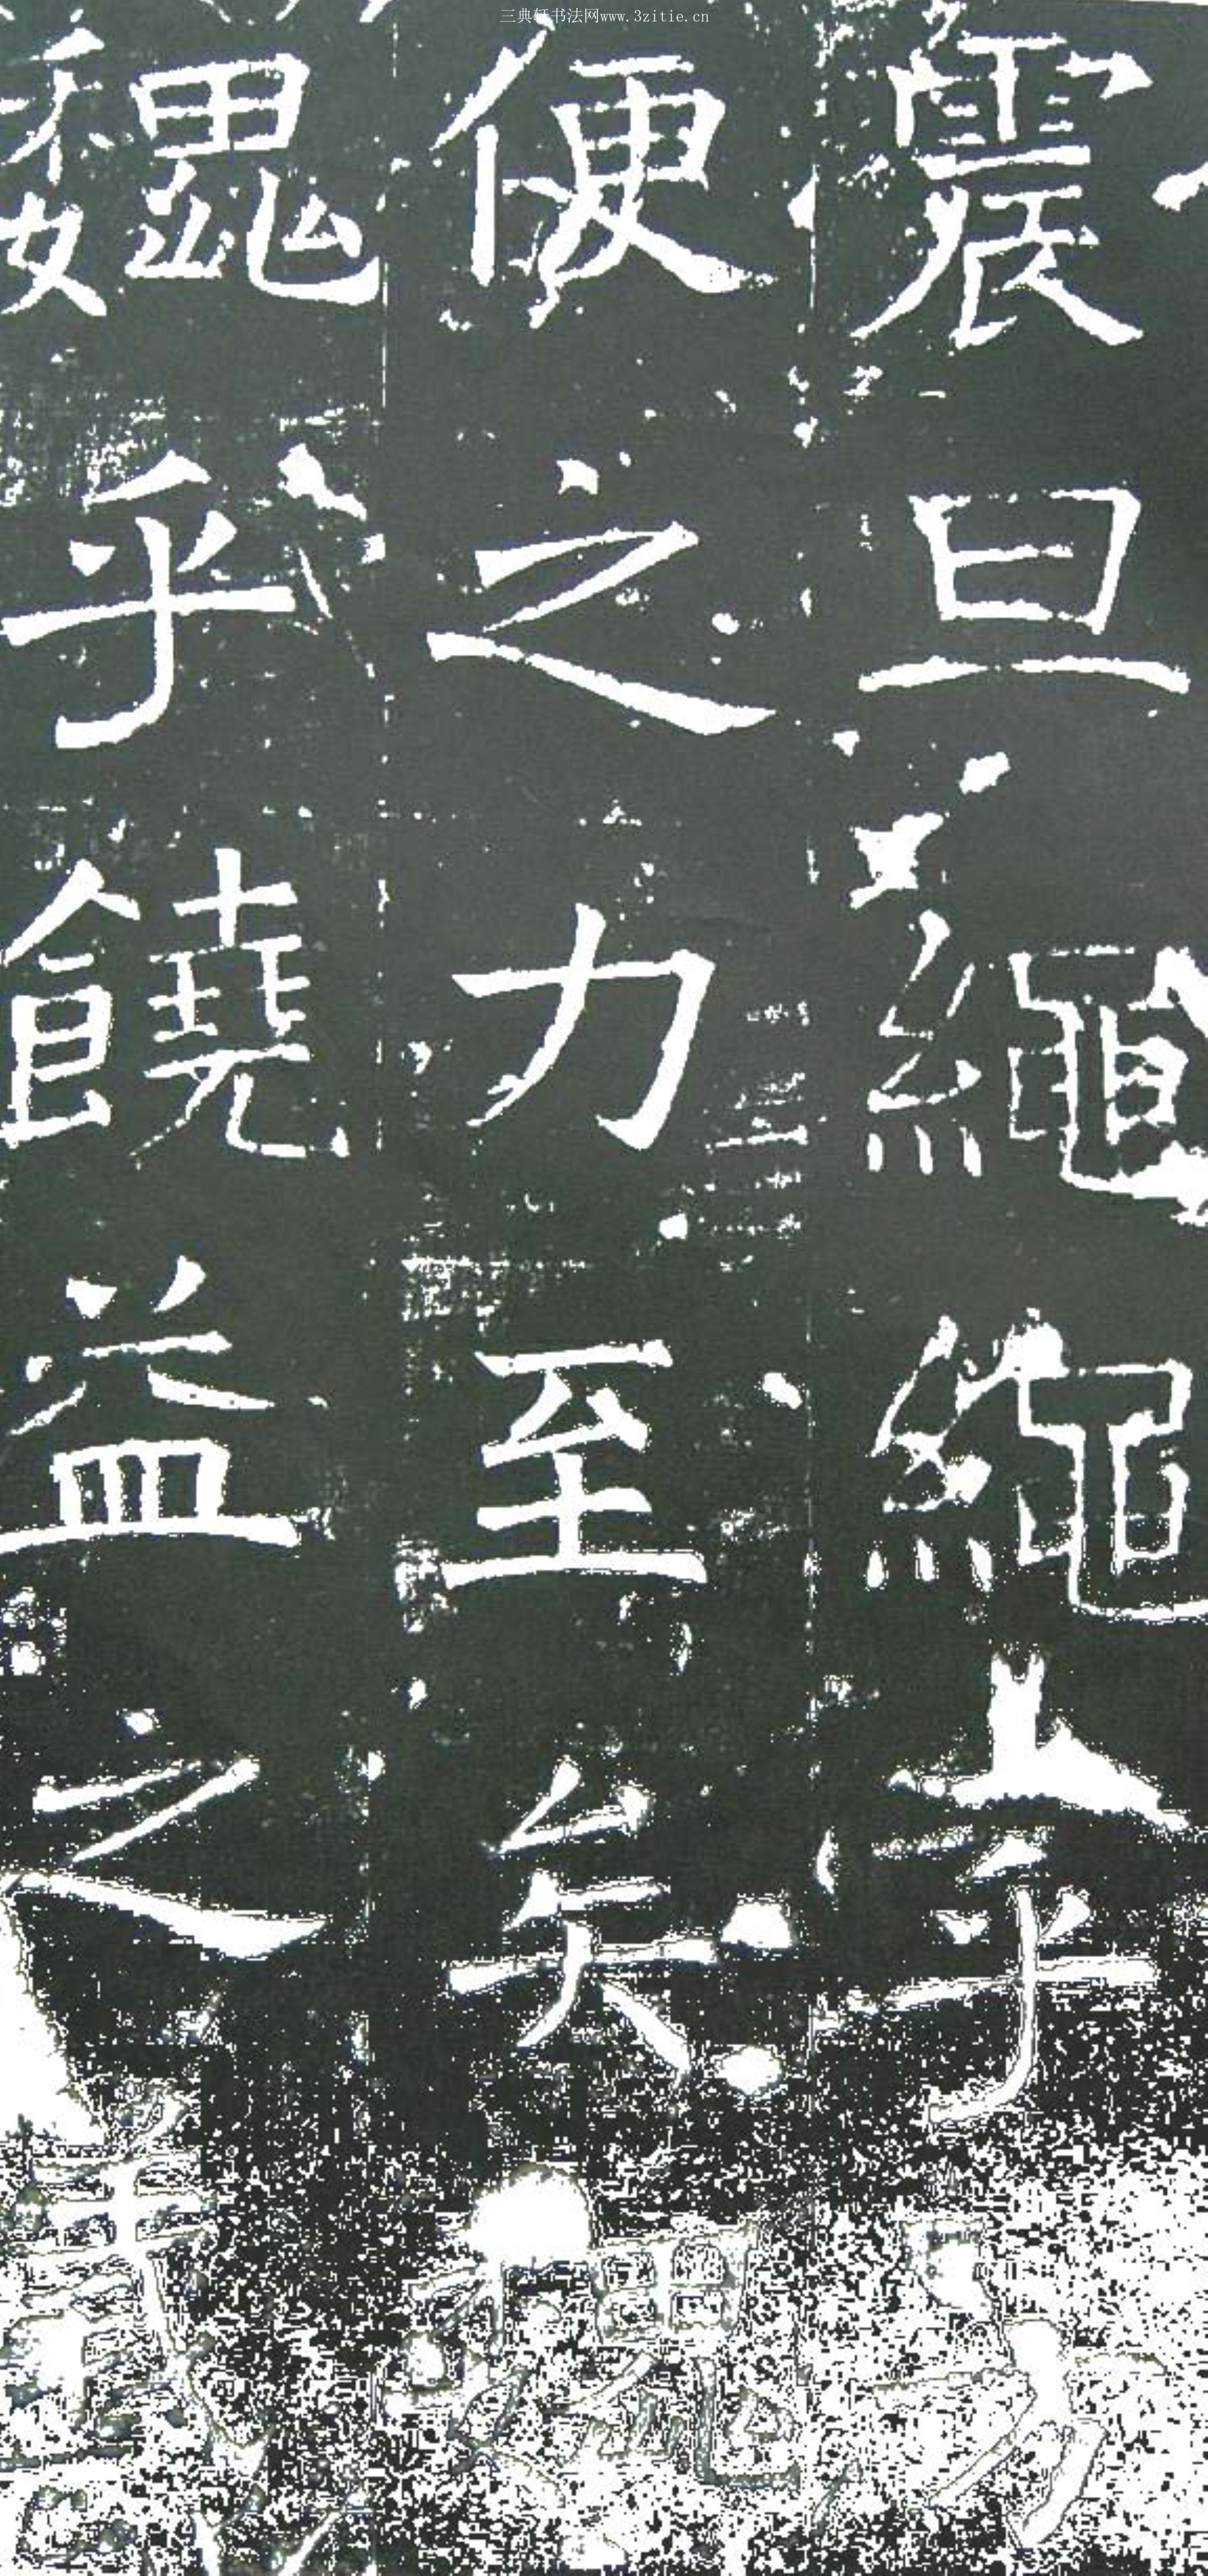 三典轩书法网www.3zitie.cn
震旦繩繩乎方
便之力至矣巍
巍乎饒益之義